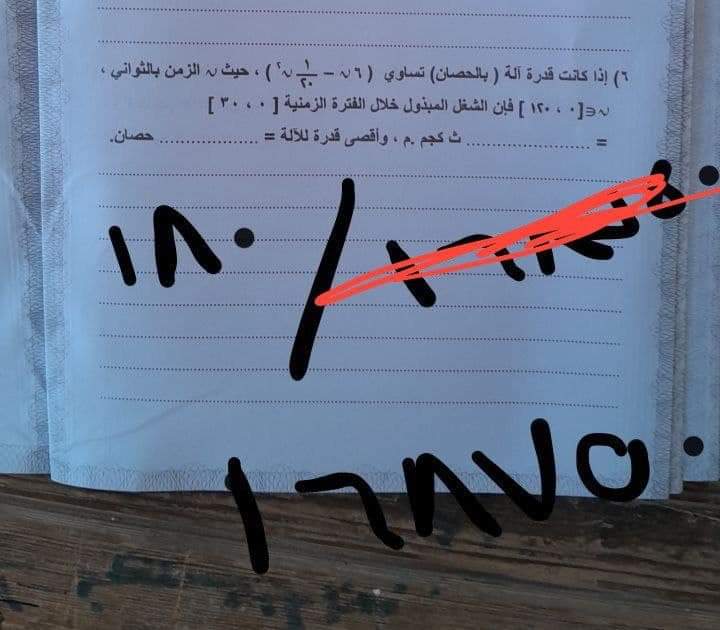 ٦) إذا كانت قدرة آلة ( بالحصان) تساوي ( ٦ ن - ١/٢٠ ن٢ ) ، حيث ن الزمن بالثواني ،
ن ∈ [ ٠ ، ١٢٠ ] فإن الشغل المبذول خلال الفترة الزمنية [ ٠ ، ٣٠ ]
= .................... ث كجم .م ، وأقصى قدرة للآلة = .................. حصان.
١٨٠ /
١٦٨٧٥٠